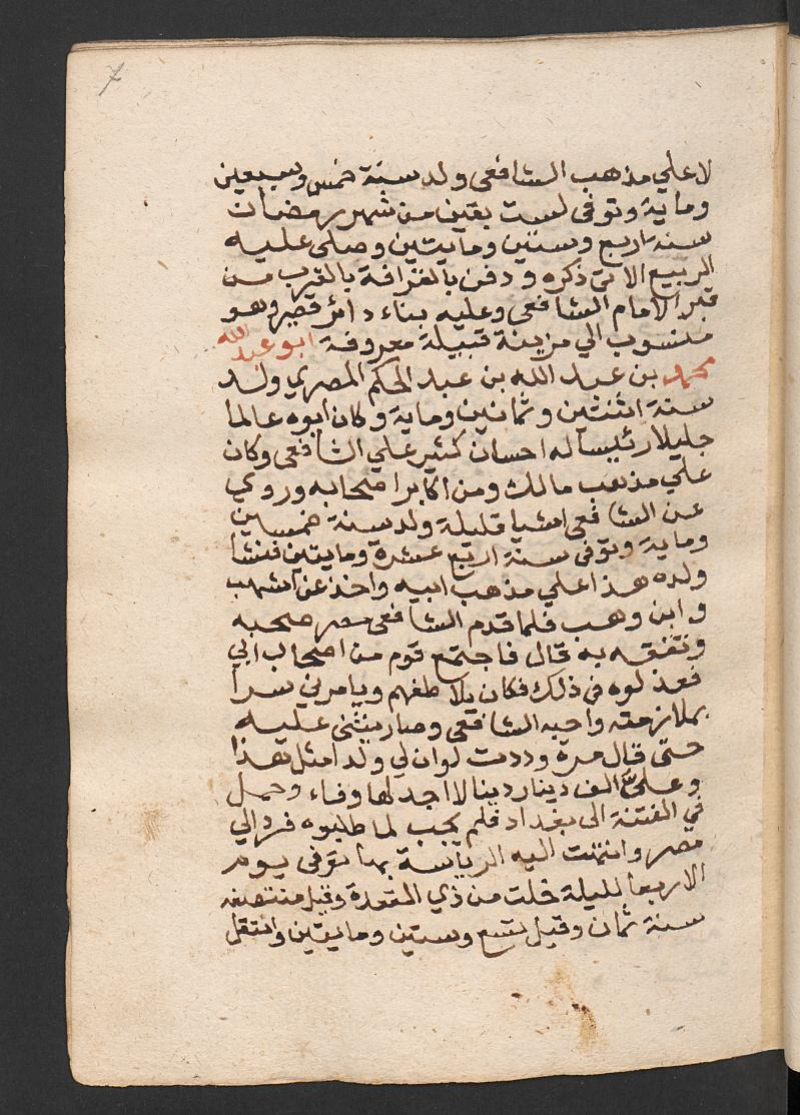 7
لا علي مذهب الشافعى ولد سنة خمس وسبعين
وماية وتوفى لست بقين من شهر رمضان
سنة اربع وستين ومايتين وصلى عليه
الربيع الاتى ذكره ودفن بالقرافة بالقرب من
قبر الامام الشافعى وعليه بناء دائر قصير وهو
منسوب الي مزينة قبيلة معروفة ابو عبد الله
محمد بن عبد الله بن عبد الحكم المصري ولد
سنة اثنتين وثمانين وماية وكان ابوه عالما
جليلا رئيسا له احسان كثير علي الشافعى وكان
علي مذهب مالك ومن اكابر اصحابه وروي
عن الشافعى اشيا قليلة ولد سنة خمسين
وماية وتوفى سنة اربع عشرة ومايتين فنشا
ولده هذا علي مذهب ابيه واخذ عن اشهب
وابن وهب فلما قدم الشافعى مصر صحبه
وتفقه به قال فاجتمع قوم من اصحاب ابي
فعذلوه فى ذلك فكان يلاطفهم ويامرني سرا
بملازمته واحبه الشافعى وصار يثنى عليه
حتى قال مرة وددت لو ان لي ولدا مثل هذا
وعلىّ الف دينار دينا لا اجد لها وفاء وحمل
في الفتنة الى بغداد فلم يجب لما طلبوه فرد الي
مصر وانتهت اليه الرياسة بها توفى يوم
الاربعا لليلة خلت من ذي القعدة وقيل منتصفه
سنة ثمان وقيل تسع وستين ومايتين وانتقل